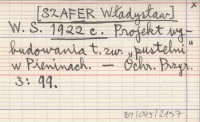 [SZAFER Władysław]
W. S. 1922 c. Projekt wy-
budowania t. zw. „pustelni”
w Pieninach. — Ochr. Przyr.
3: 99.